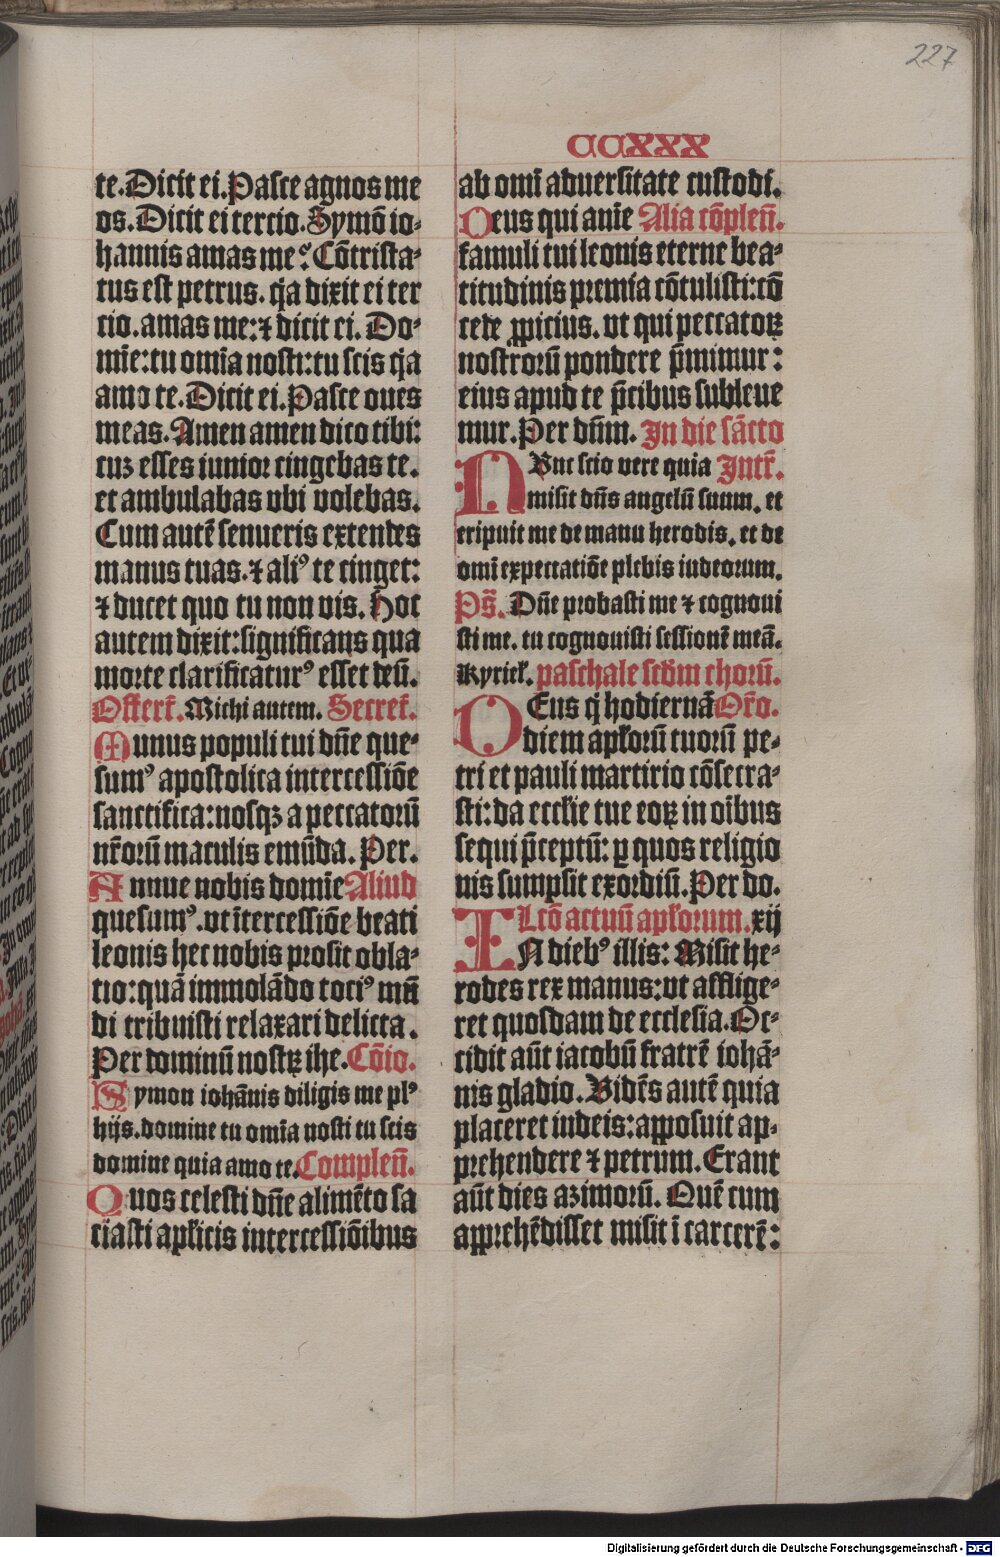 227
CCXXX
te. Dicit ei. Pasce agnos me
os. Dicit ei tercio. Symō io-
hannis amas me? Cōtrista-
tus est petrus. q̄a dixit ei ter
cio. amas me: ⁊ dicit ei. Do-
mīe: tu omīa nosti: tu scis q̄a
amo te. Dicit ei. Pasce oues
meas. Amen amen dico tibi:
cuꝫ esses iunior cingebas te.
et ambulabas vbi volebas.
Cum autē senueris extendes
manus tuas. ⁊ aliꝰ te cinget:
⁊ ducet quo tu non vis. Hoc
autem dixit: significans qua
morte clarificaturꝰ esset deū.
Offert̄. Michi autem. Secret̄.
Munus populi tui dn̄e que-
sumꝰ apostolica intercessiōe
sanctifica: nosqꝫ a peccatorū
nr̄orū maculis emūda. Per.
Annue nobis domīe Aliud
quesumꝰ. vt ītercessiōe beati
leonis hec nobis prosit obla-
tio: quā immolādo tociꝰ mū
di tribuisti relaxari delicta.
Per dominū nostꝝ ihe. Cōio.
Symon iohānis diligis me plꝰ
hijs. domine tu omīa nosti tu scis
domine quia amo te. Complen̄.
Quos celesti dn̄e alimēto sa
ciasti apl̄icis intercessiōibus
ab omī aduersitate custodi.
Deus qui anīe Alia cōplen̄.
famuli tui leonis eterne bea-
titudinis premia cōtulisti: cō
cede ꝓpicius. vt qui peccatoꝝ
nostrorū pondere p̄mimur:
eius apud te p̄cibus subleue
mur. Per dn̄m. In die sācto
NVnc scio vere quia Intr̄.
misit dn̄s angelū suum. et
eripuit me de manu herodis. et de
omī expectatiōe plebis iudeorum.
Ps̄. Dn̄e probasti me ⁊ cognoui
sti me. tu cognouisti sessionē meā.
Kyriel̄. paschale scd̄m chorū.
DEus q̄ hodiernā Or̄o.
diem apl̄orū tuorū pe-
tri et pauli martirio cōsecra-
sti: da eccl̄ie tue eoꝝ in oībus
sequi p̄ceptū: ꝑ quos religio
nis sumpsit exordiū. Per do.
Lcō actuū apl̄orum. xij
IN diebꝰ illis: Misit he-
rodes rex manus: vt afflige-
ret quosdam de ecclesia. Oc-
cidit aūt iacobū fratrē iohā-
nis gladio. Vidēs autē quia
placeret iudeis: apposuit ap-
prehendere ⁊ petrum. Erant
aūt dies azimorū. Quē cum
apprehēdisset misit ī carcerē:
Digitalisierung gefördert durch die Deutsche Forschungsgemeinschaft - DFG